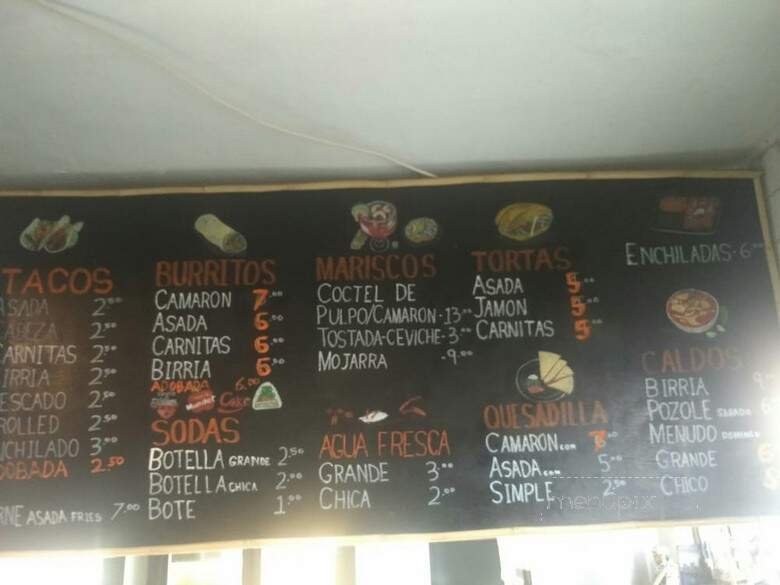 TACOS
ASADA 2.50
CABEZA 2.50
CARNITAS 2.50
BIRRIA 2.50
PESCADO 2.50
ROLLED 2.50
ENCHILADO 3.00
ADOBADA 2.50
ASADA FRIES 7.00
BURRITOS
CAMARON 7.00
ASADA 6.00
CARNITAS 6.00
BIRRIA 6.50
ADOBADA 6.00
SODAS
BOTELLA GRANDE 2.50
BOTELLA CHICA 2.00
BOTE 1.00
MARISCOS
COCTEL DE
PULPO/CAMARON-13.00
TOSTADA-CEVICHE-3.00
MOJARRA -9.00
AGUA FRESCA
GRANDE 3.00
CHICA 2.00
TORTAS
ASADA 5.00
JAMON 5.00
CARNITAS 5.00
QUESADILLA
CAMARON 7.00
ASADA 5.00
SIMPLE 2.50
ENCHILADAS-6.00
CALDOS
BIRRIA
POZOLE SABADO
MENUDO DOMINGO
GRANDE
CHICO
menupix